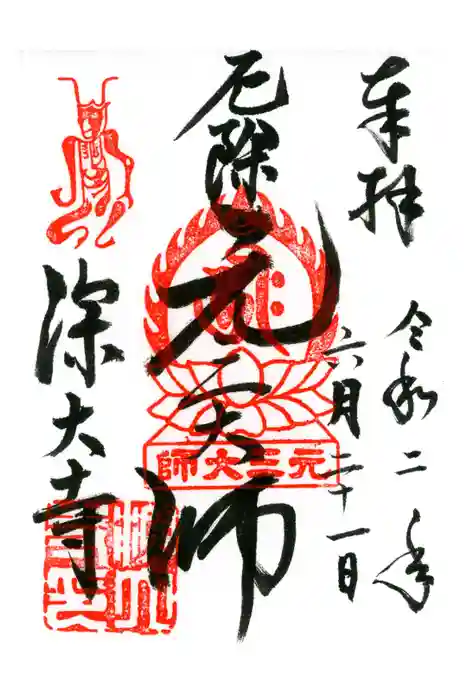 奉拝
令和二年
六月二十一日
厄除
元三大師
師大三元
深大寺